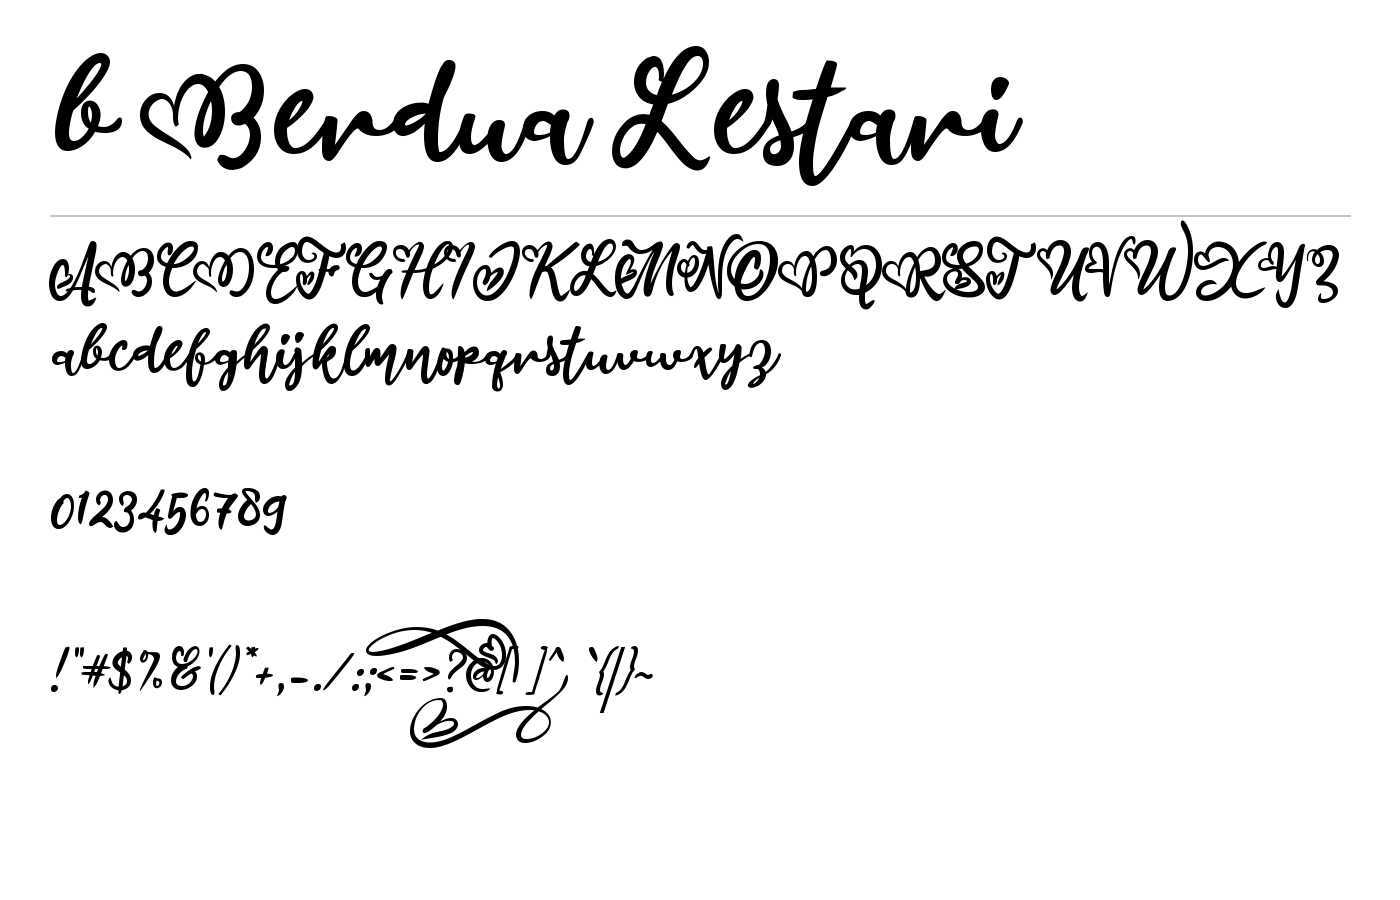 b Berdua Lestari
ABCDEFGHIJKLMNOPQRSTUVWXYZ
abcdefghijklmnopqrstuvwxyz
0123456789
!"#$%&'()*+,-./:;<=>?@[\]^_`{|}~